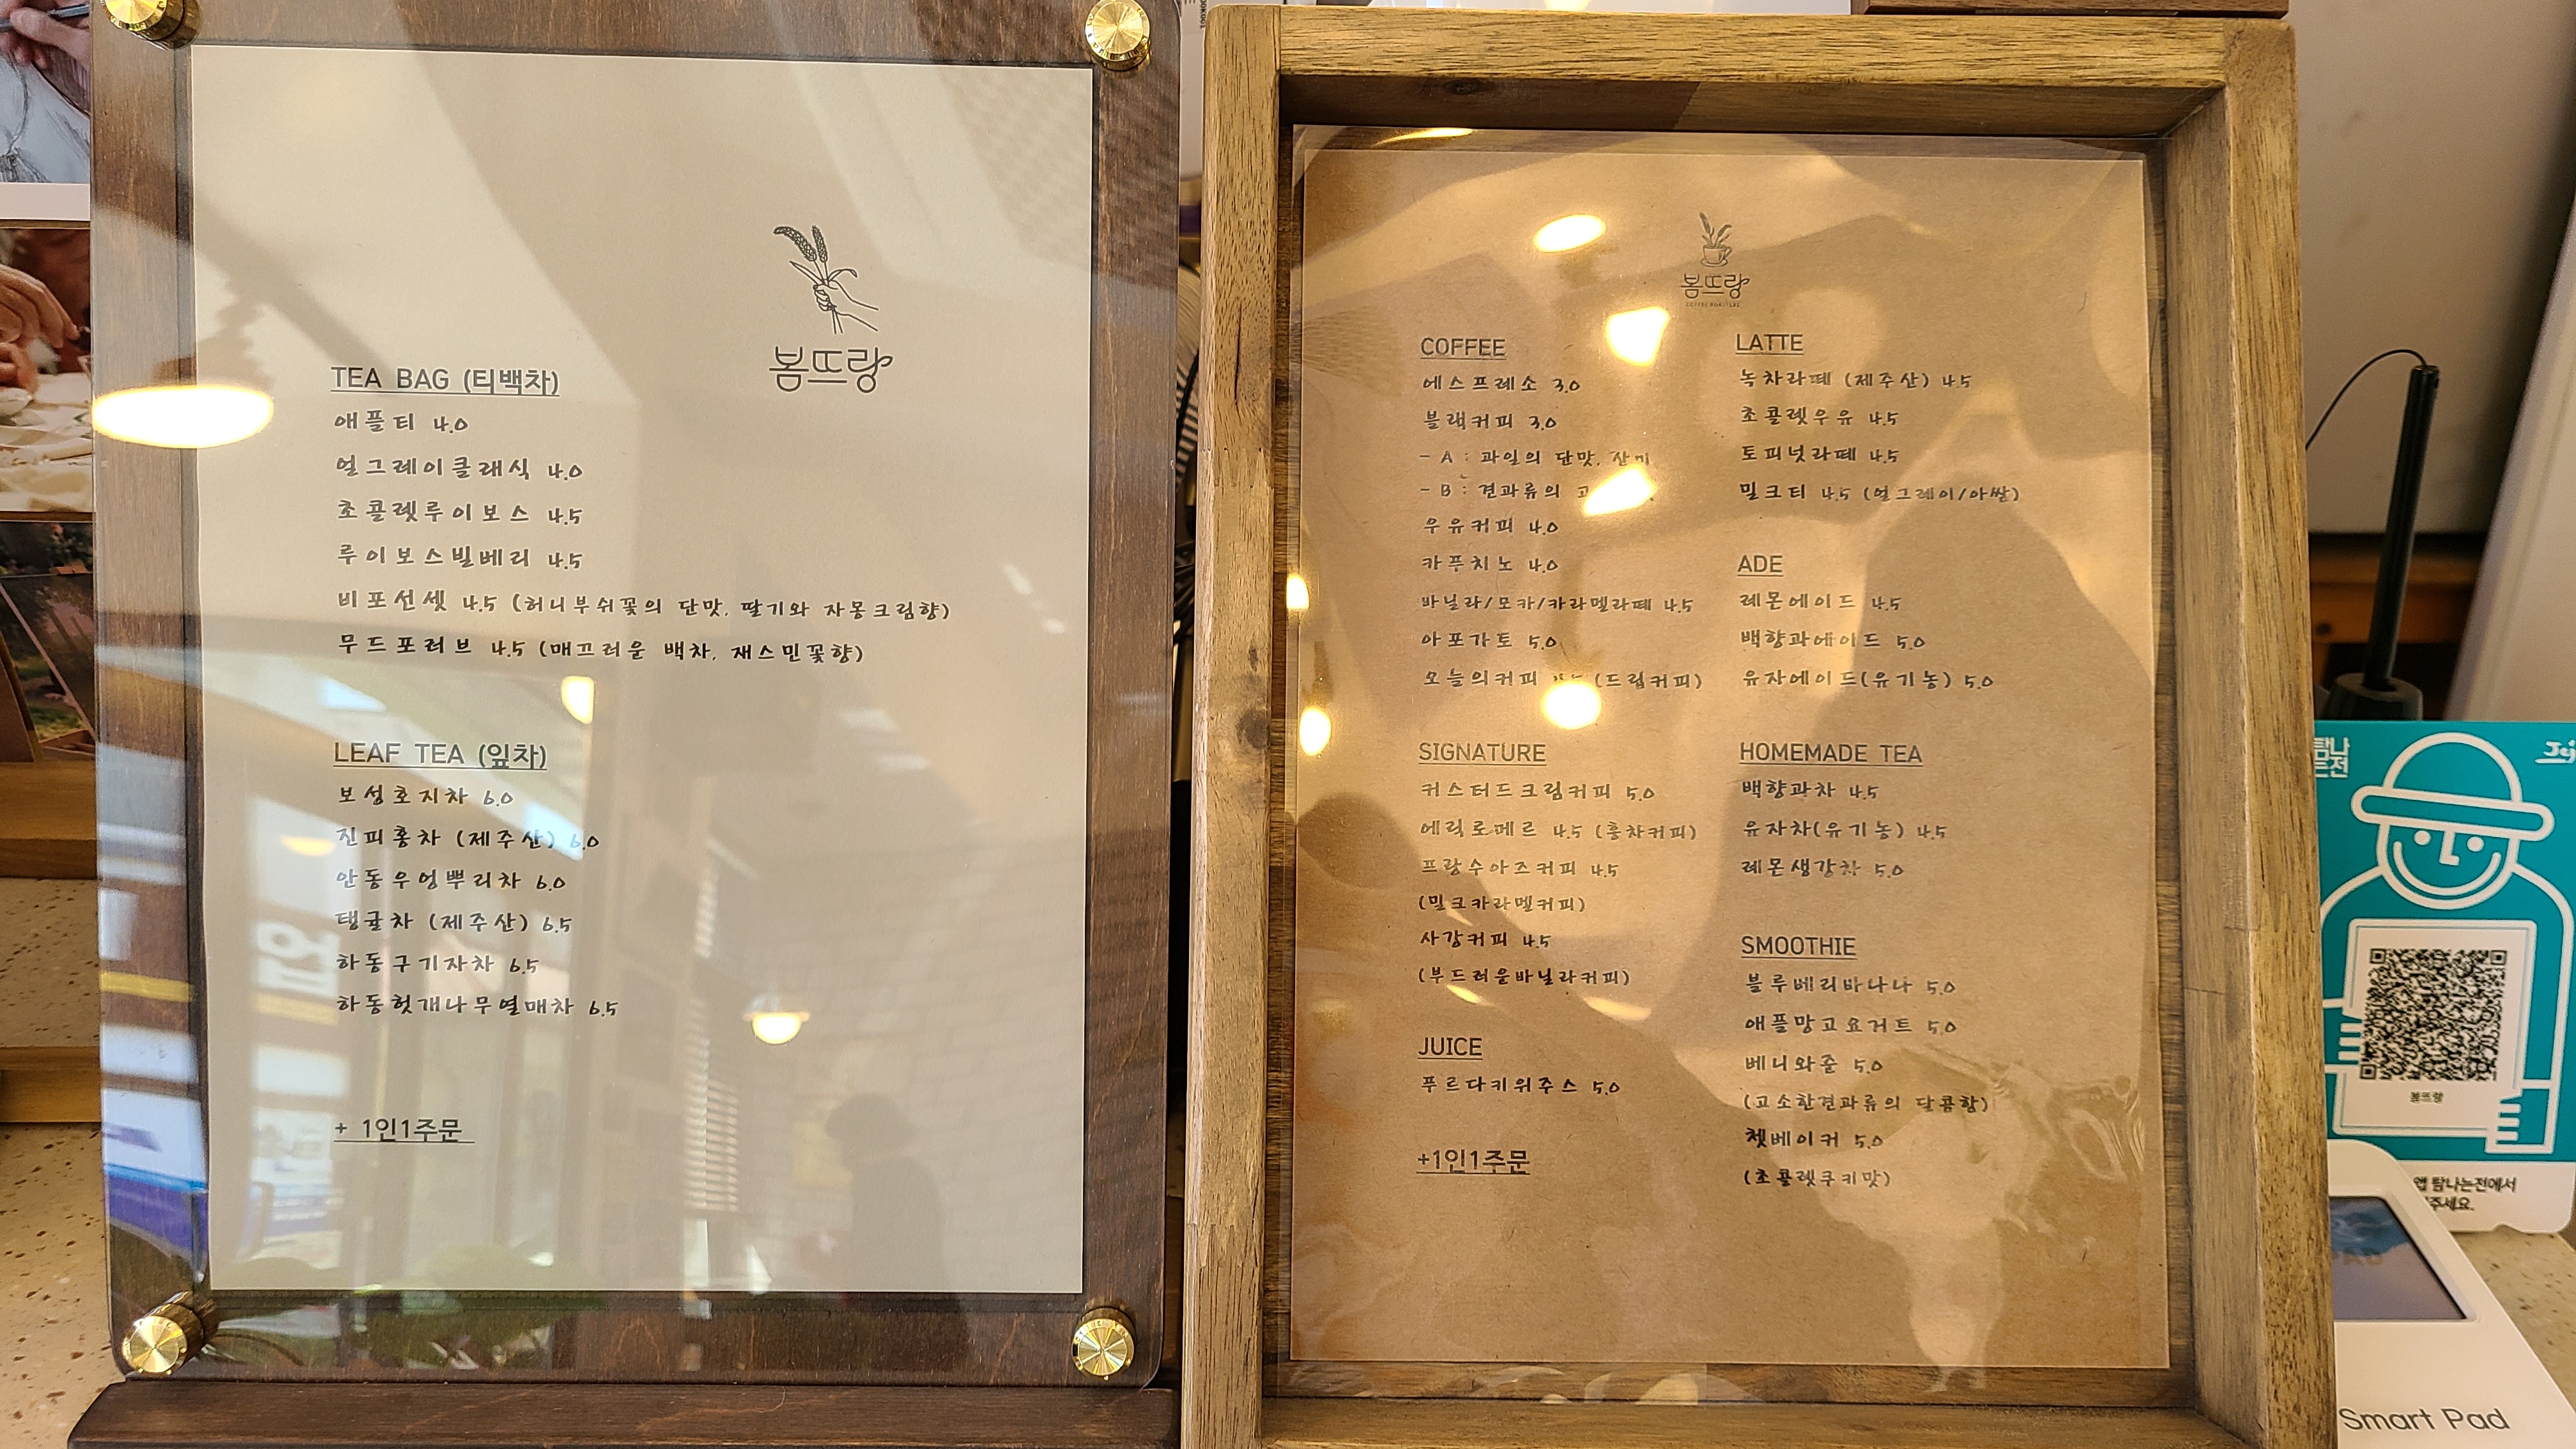 봄뜨랑
TEA BAG (티백차)
애플티 4.0
얼그레이클래식 4.0
초콜렛루이보스 4.5
루이보스빌베리 4.5
비포선셋 4.5 (허니부쉬꽃의 단맛, 딸기와 자몽크림향)
무드포러브 4.5 (매끄러운 백차, 재스민꽃향)
LEAF TEA (잎차)
보성호지차 6.0
진피홍차 (제주산) 6.0
안동우엉뿌리차 6.0
탱귤차 (제주산) 6.5
하동구기자차 6.5
하동헛개나무열매차 6.5
+ 1인1주문
봄뜨랑
COFFEE ROASTERS
COFFEE
에스프레소 3.0
블랙커피 3.0
- A : 과일의 단맛, 산미
- B : 견과류의
우유커피 4.0
카푸치노 4.0
바닐라/모카/카라멜라떼 4.5
아포가토 5.0
오늘의커피 (드립커피)
SIGNATURE
커스터드크림커피 5.0
에릭로메르 4.5 (홍차커피)
프랑수아즈커피 4.5
(밀크카라멜커피)
사강커피 4.5
(부드러운바닐라커피)
JUICE
푸르다키위주스 5.0
+1인1주문
LATTE
녹차라떼 (제주산) 4.5
초콜렛우유 4.5
토피넛라떼 4.5
밀크티 4.5 (얼그레이/아쌈)
ADE
레몬에이드 4.5
백향과에이드 5.0
유자에이드(유기농) 5.0
HOMEMADE TEA
백향과차 4.5
유자차(유기농) 4.5
레몬생강차 5.0
SMOOTHIE
블루베리바나나 5.0
애플망고요거트 5.0
베니와준 5.0
(고소한견과류의 달콤함)
쳇베이커 5.0
(초콜렛쿠키맛)
탐나
는전
봄뜨랑
앱 탐나는전에서
주세요.
Smart Pad